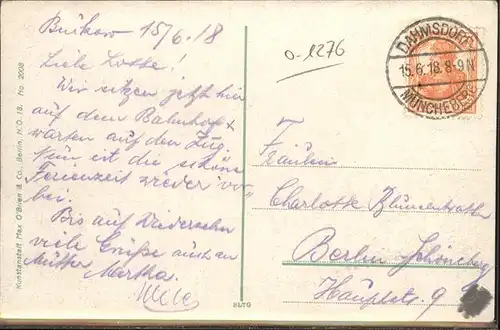 Buckow 15/6.18
Liebe Lotte!
Wir sitzen jetzt hier
auf dem Bahnhof &
warten auf den Zug.
Nun ist die schöne
Ferienzeit wieder vor-
bei.
Bis auf Wiedersehn
viele Grüße auch an
Mutter Martha.
o-1276
DAHMSDORF
15.6.18.8-9N
MÜNCHEBERG
Fräulein
Charlotte Blumenrather
Berlin-Schöneberg
Hauptstr. 9
Kunstanstalt Max O'Brien & Co., Berlin, N.O. 18. No. 2008